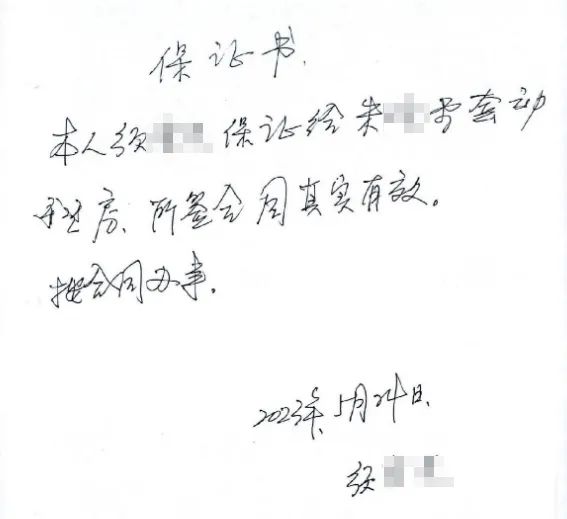 保证书.
本人须 保证给朱 壹套动
迁房、所签合同真实有效。
按合同办事.
2023年5月24日.
须